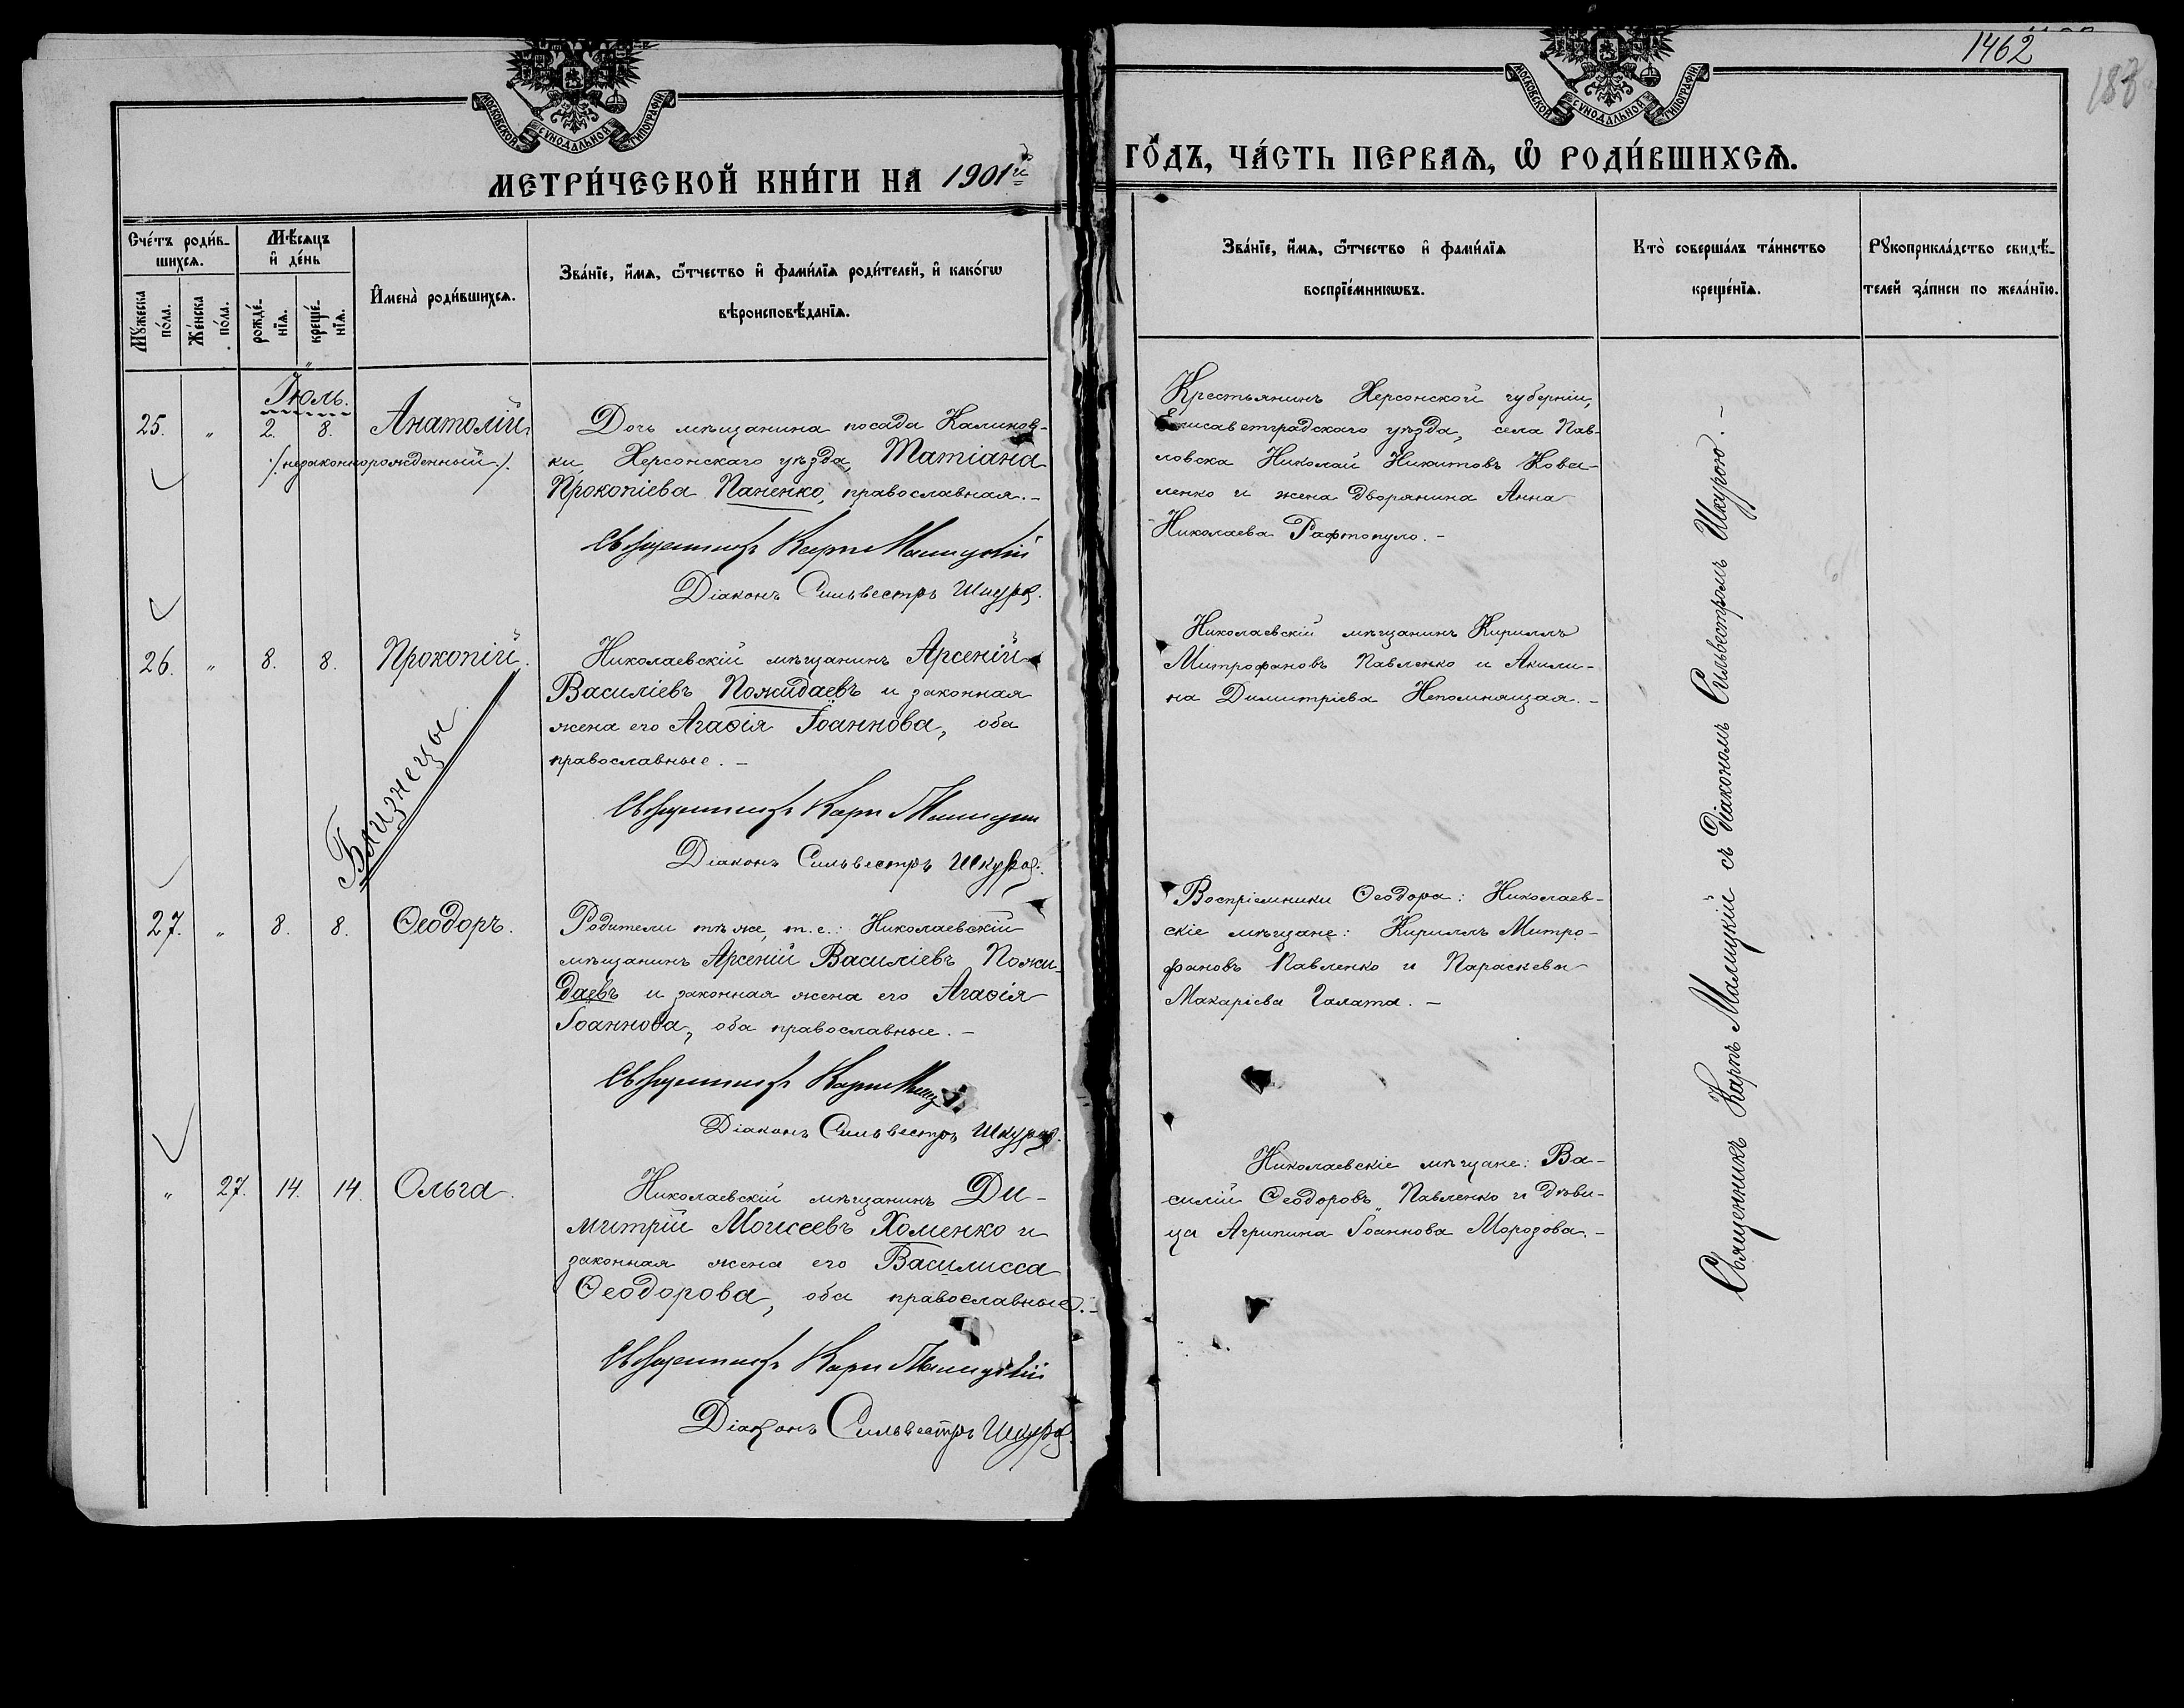 1462
МОСКОВСКОЙ СѴНОДАЛЬНОЙ ТИПОГРАФІИ
МОСКОВСКОЙ СѴНОДАЛЬНОЙ ТИПОГРАФІИ
МЕТРИ́ЧЕСКОЙ КНИ́ГИ НА 1901й
ГО́ДЪ, ЧА́СТЬ ПЕ́РВАѦ, Ѽ РОДИ́ВШИХСѦ.
Сче́тъ роди́в-
шихсѧ.
Мꙋ́жеска
по́ла.
Же́нска
по́ла.
Мѣ́сѧцъ
и҆ де́нь
рожде́-
нїѧ.
креще́-
нїѧ.
И҆мена̀ роди́вшихсѧ.
Зва́нїе, и҆́мѧ, ѻ҆́тчество и҆ фами́лїѧ роди́телей, и҆ како́гѡ
вѣроисповѣ́данїѧ.
Зва́нїе, и҆́мѧ, ѻ҆́тчество и҆ фами́лїѧ
воспрїе́мникѡвъ.
Кто̀ соверша́лъ та́инство
креще́нїѧ.
Рꙋкоприкла́дство свидѣ́-
телей за́писи по жела́нїю.
Іюль.
25. „ 2. 8. Анатолій
/незаконнорожденный/.
Дочь мѣщанина посада Калинов-
ки, Херсонскаго уѣзда, Татіана
Прокопіева Паненко, православная.-
Священникъ Карпъ Малицкій
Діаконъ Сильвестръ Шкура.
Крестьянинъ Херсонской губерніи,
Елисаветградскаго уѣзда, села Пав-
ловска Николай Никитовъ Кова-
ленко и жена дворянина Анна
Николаева Рафтопуло.-
26. „ 8. 8. Прокопій.
Близнецы
Николаевскій мѣщанинъ Арсеній
Василіевъ Пожидаевъ и законная
жена его Агаѳія Іоаннова, оба
православные.-
Священникъ Карпъ Малицкій
Діаконъ Сильвестръ Шкура.
Николаевскій мѣщанинъ Кириллъ
Митрофановъ Павленко и Акили-
на Димитріева Непомнящая.-
27. „ 8. 8. Ѳеодоръ.
Родители тѣ же, т.е.: Николаевскій
мѣщанинъ Арсеній Василіевъ Пожи-
даевъ и законная жена его Агаѳія
Іоаннова, оба православные.-
Священникъ Карпъ
Діаконъ Сильвестръ Шкура.
Воспріемники Ѳеодора: Николаев-
скіе мѣщане: Кириллъ Митро-
фановъ Павленко и Параскева
Макаріева Галата.-
„ 27. 14. 14. Ольга.
Николаевскій мѣщанинъ Ди-
митрій Моисеевъ Хоменко и
законная жена его Василисса
Ѳеодорова, оба православные.-
Священникъ Карпъ Малицкій
Діаконъ Сильвестръ Шкура.
Николаевскіе мѣщане: Ва-
силій Ѳеодоровъ Павленко и дѣви-
ца Агрипина Іоаннова Морозова.-
Священникъ Карпъ Малицкій съ діакономъ Сильвестромъ Шкурою.-